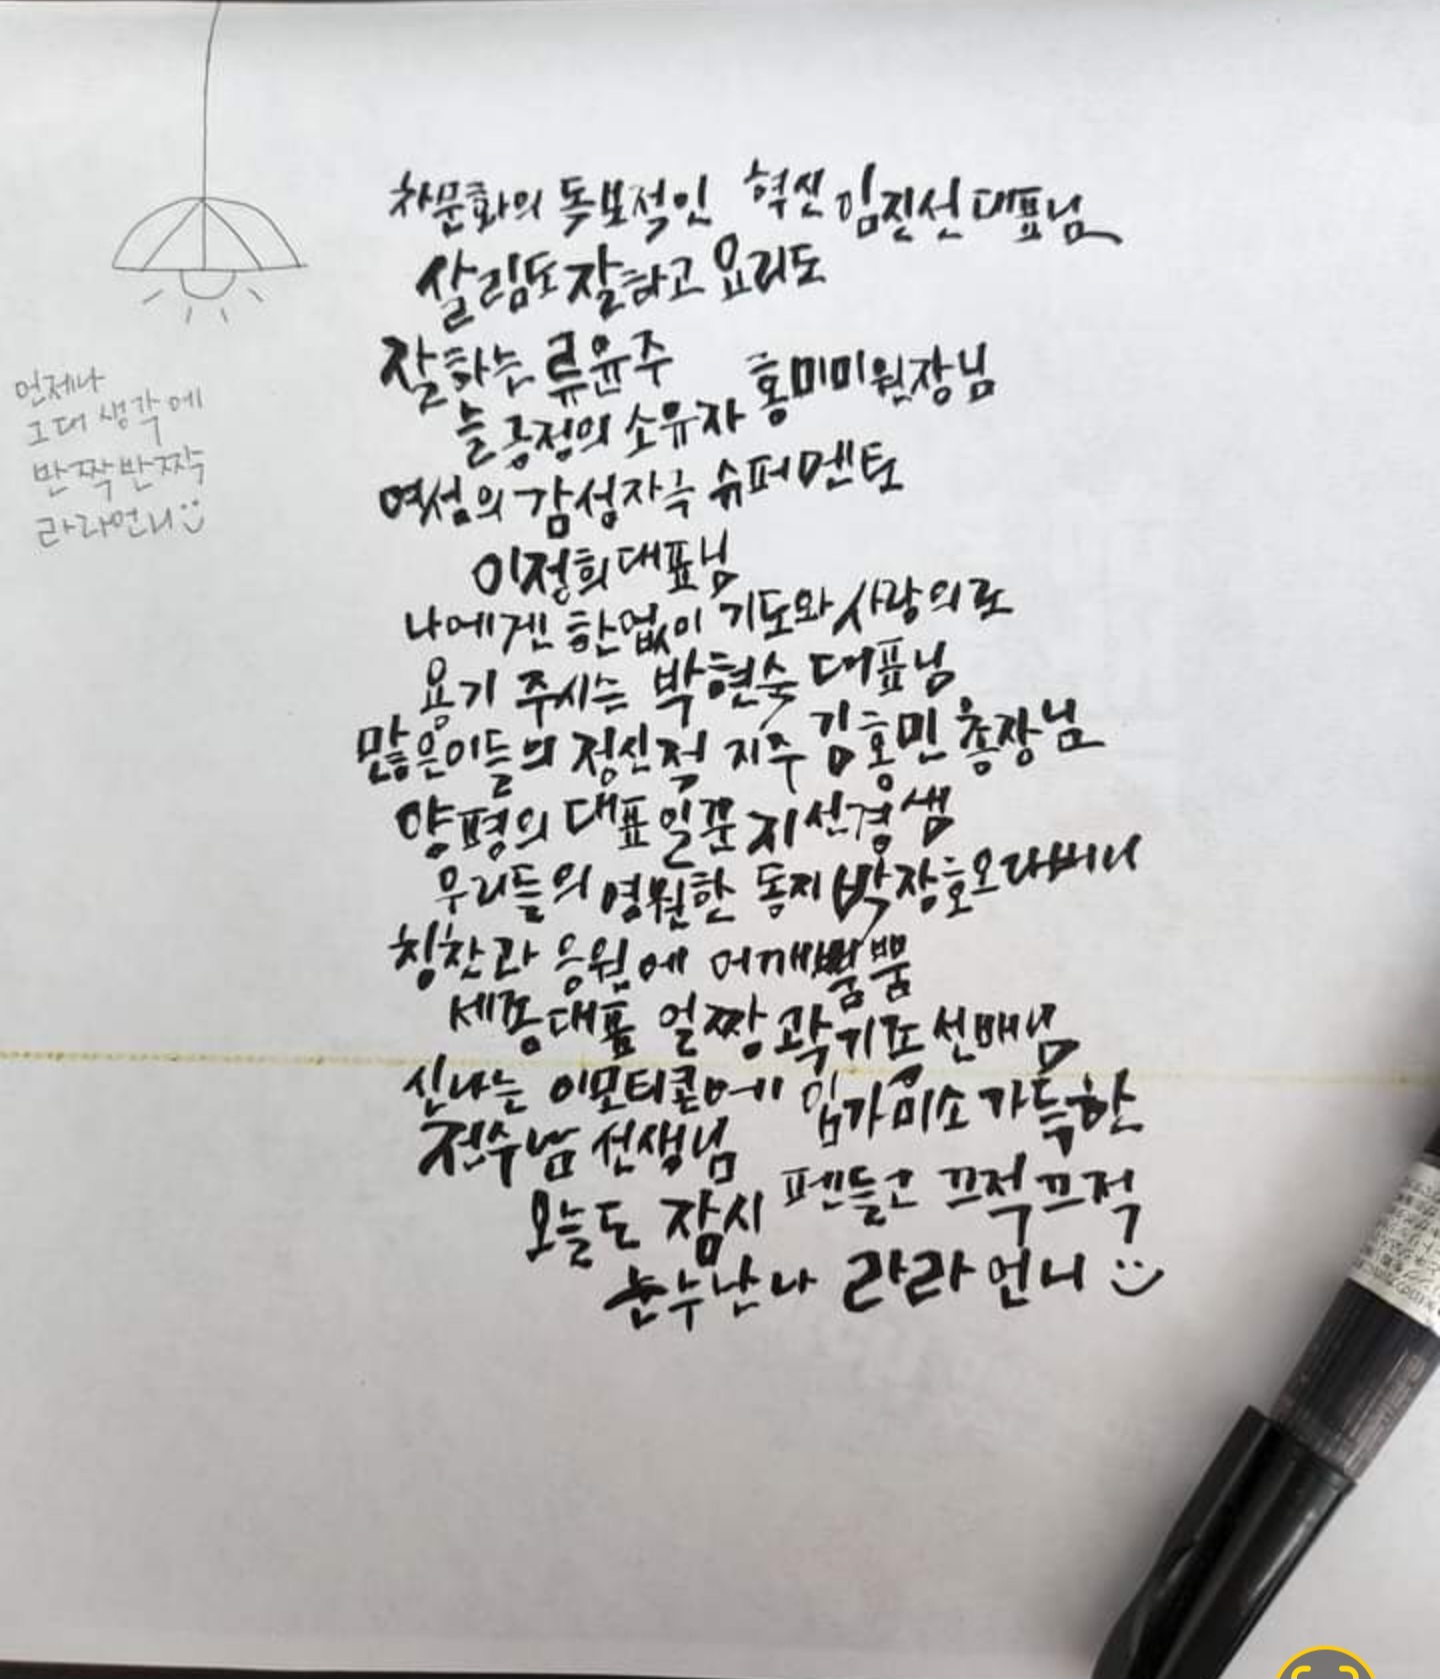 차문화의 독보적인 혁신 임진선 대표님
살림도 잘하고 요리도
잘하는 류윤주
늘 긍정의 소유자 홍미미원장님
여성의 감성자극 슈퍼멘토
이정희대표님
나에겐 한없이 기도와 사랑의로
용기 주시는 박현숙 대표님
많은이들의 정신적 지주 김홍민 총장님
양평의 대표일꾼 지선경샘
우리들의 영원한 동지 박장호오라버니
칭찬과 응원에 어깨뿜뿜
세종대홈 얼짱 곽기표선배님
신나는 이모티콘에 입가미소 가득한
전수남 선생님
오늘도 잠시 펜들고 끄적끄적
흔누난나 라라언니
언제나
그대 생각에
반짝반짝
라라언니